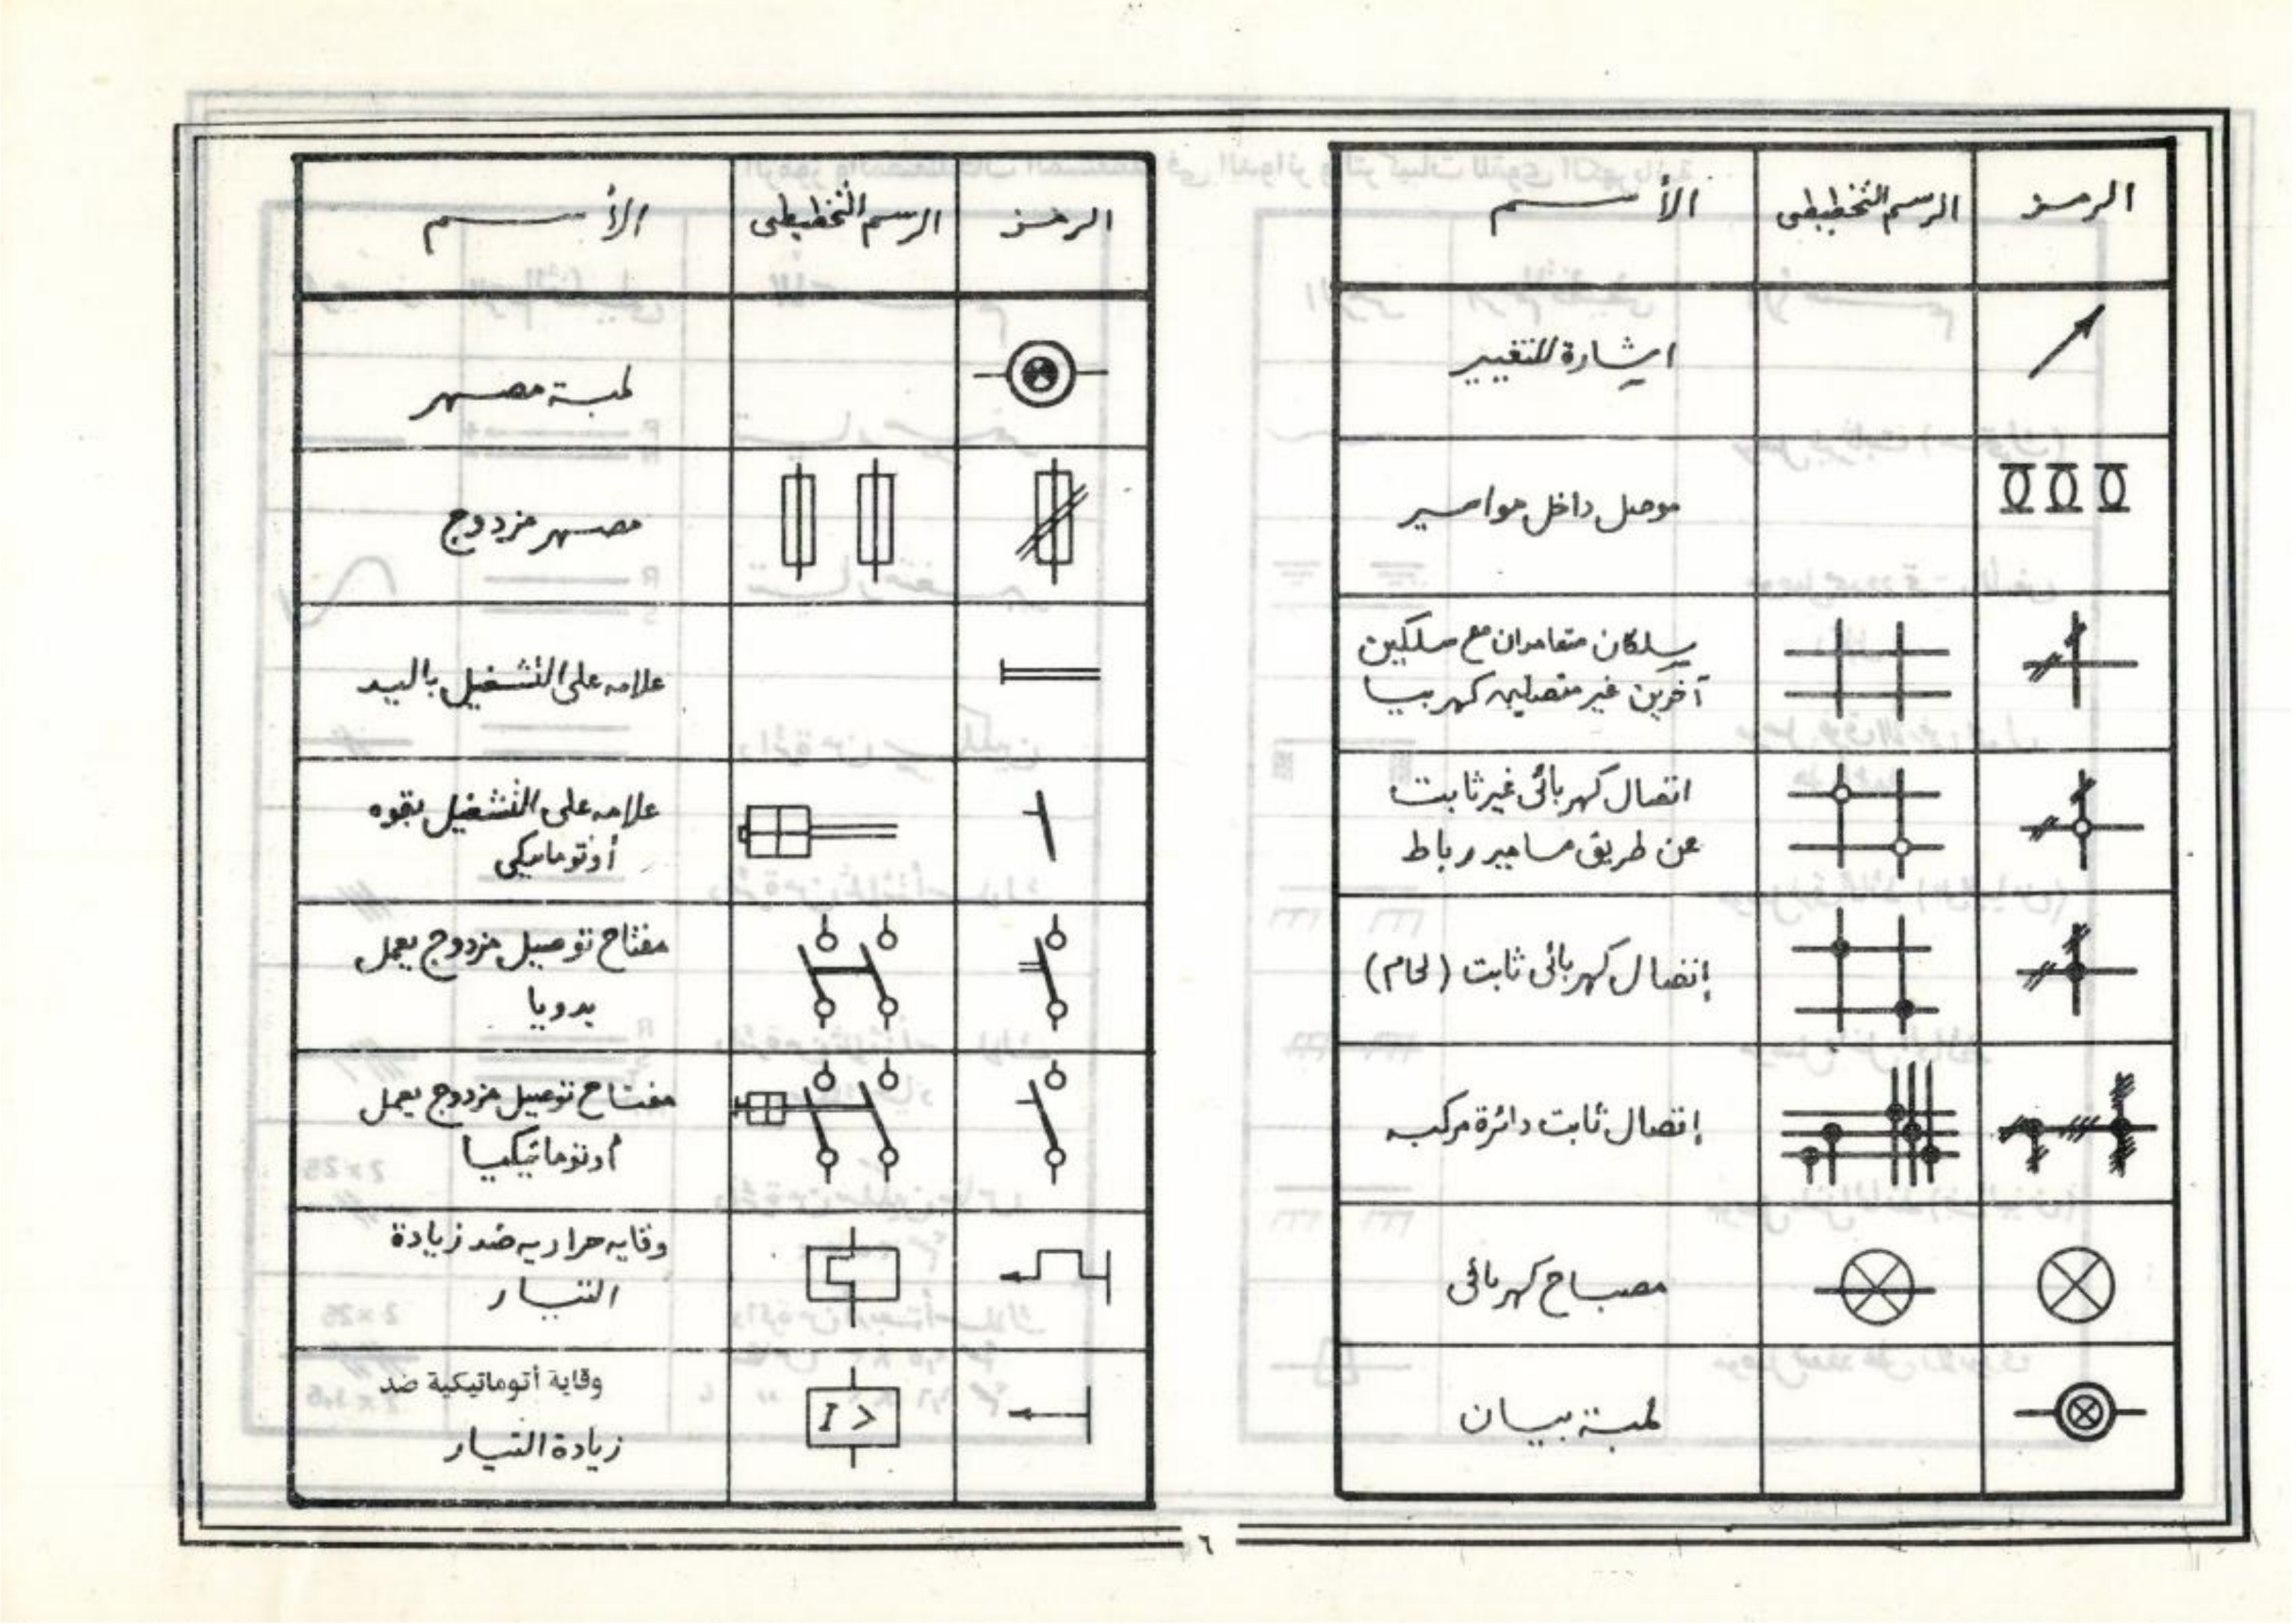 الرمز
الرسم التخطيطى
الأسم
إشارة للتغيير
موصل داخل مواصير
سلكان متعامدان مع سلكين
آخرين غير متصلين كهربيا
اتصال كهربائى غير ثابت
عن طريق مسامير رباط
إتصال كهربائى ثابت (لحام)
إتصال ثابت دائرة مركبه
مصباح كهربائى
لمبة بيان
الرمز
الرسم التخطيطى
الأسم
لمبة مصهر
مصهر مزدوج
علامه على التشغيل باليد
علامه على التشغيل بقوه
أوتوماتيكى
مفتاح توصيل مزدوج يعمل
يدويا
مفتاح توصيل مزدوج يعمل
أوتوماتيكيا
وقايه حراريه ضد زيادة
التيار
I >
وقاية أتوماتيكية ضد
زيادة التيار
٦